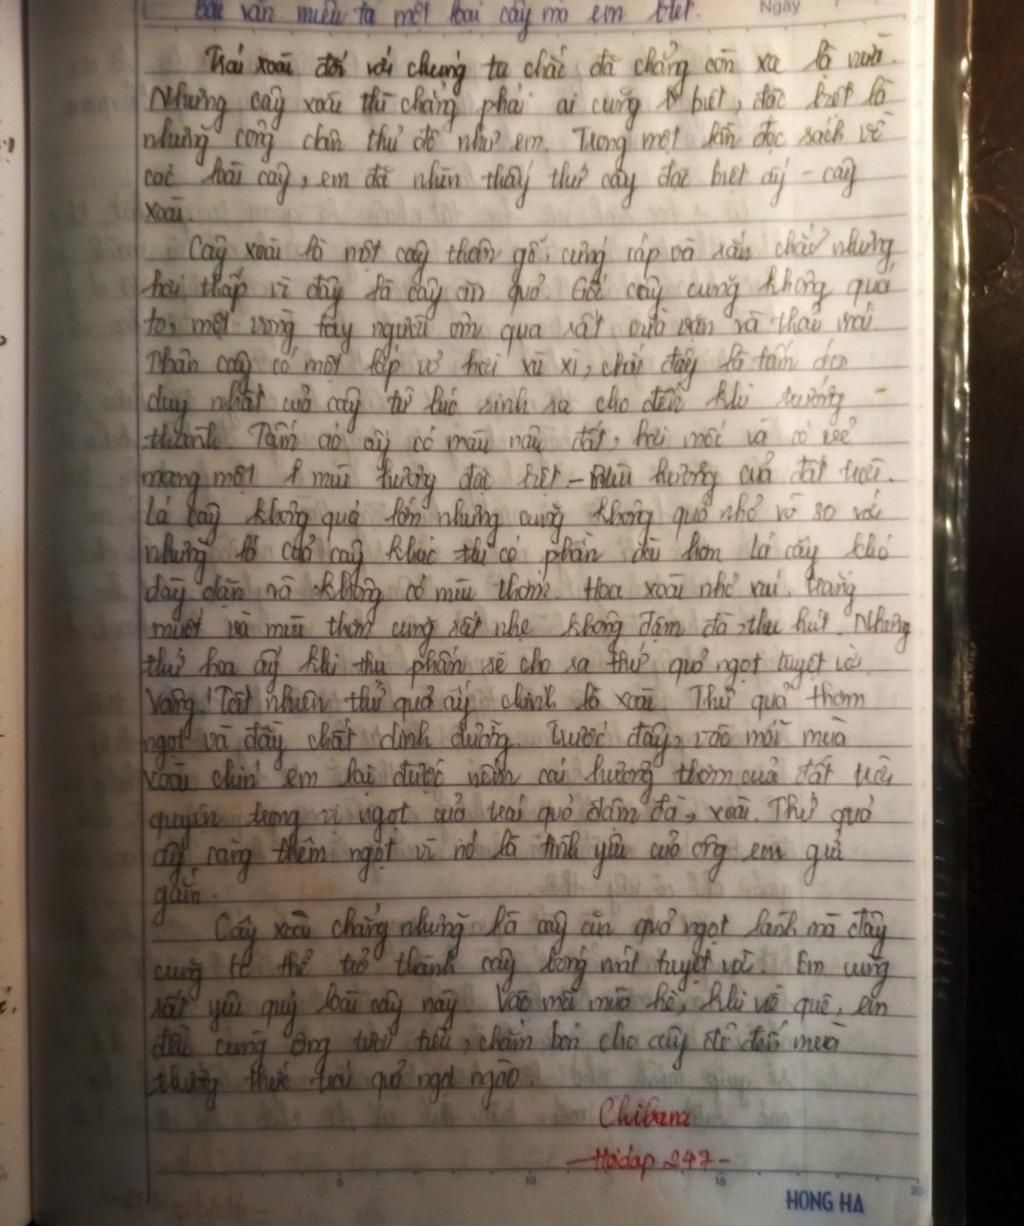 Bài văn miêu tả một loại cây mà em biết.
Ngày
Trái xoài đối với chúng ta chắc đã chẳng còn xa lạ nữa.
Nhưng cây xoài thì chẳng phải ai cũng biết, đặc biệt là
những công dân thủ đô như em. Trong một lần đọc sách về
các loài cây, em đã nhìn thấy thứ cây đặc biệt ấy - cây
xoài.
Cây xoài là một cây thân gỗ, cứng cáp và rắn chắc nhưng
hơi thấp vì đây là cây ăn quả. Gốc cây cũng không quá
to, một vòng tay người ôm qua rất vừa vặn và thoải mái
Thân cây có một lớp vỏ hơi xù xì, chắc đây là tấm áo
duy nhất của cây từ lúc sinh ra cho đến khi trưởng
thành. Tấm áo ấy có màu nâu đất, hơi mốc và có vẻ
mang một mùi hương đặc biệt - mùi hương của đất trời.
Lá cây không quá lớn nhưng cũng không quá nhỏ và so với
những lá của cây khác thì có phần dài hơn lá cây khá
dày dặn và không có mùi thơm. Hoa xoài nhỏ xíu, trắng
muốt và mùi thơm cũng rất nhẹ không đậm đà, thu hút. Nhưng
thứ hoa ấy khi thụ phấn sẽ cho ra thứ quả ngọt tuyệt vời
vàng! Tất nhiên thứ quả ấy chính là xoài. Thứ quả thơm
ngọt và đầy chất dinh dưỡng. Trước đây, vào mỗi mùa
xoài chín em lại được nếm cái hương thơm của đất trời
quyện trong vị ngọt của trái quả đậm đà, xoài. Thứ quả
ấy càng thêm ngọt vì nó là tình yêu của ông em gửi
gắm.
Cây xoài chẳng những là cây ăn quả ngọt lành mà đây
cũng có thể trở thành cây bóng mát tuyệt vời. Em cũng
rất yêu quý loài cây này. Vào mỗi mùa hè, khi về quê, em
đều cùng ông tưới tiêu, chăm bón cho cây để đến mùa
những thức trái quả ngọt ngào.
Chibana
- Hoidap 247 -
5 10 15 20
HONG HA